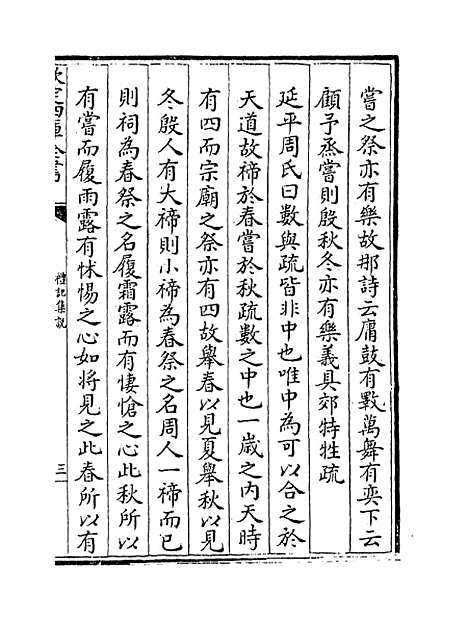 嘗之祭亦有樂故那詩云庸鼓有斁萬舞有奕下云
顧予烝嘗則殷秋冬亦有樂義具郊特牲疏
延平周氏曰數與疏皆非中也唯中為可以合之於
天道故禘於春嘗於秋疏數之中也一歲之内天時
有四而宗廟之祭亦有四故舉春以見夏舉秋以見
冬殷人有大禘則小禘為春祭之名周人一禘而已
則祠為春祭之名履霜露而有悽愴之心此秋所以
有嘗而履雨露有怵惕之心如將見之此春所以有
欽定四庫全書
禮記集説
三